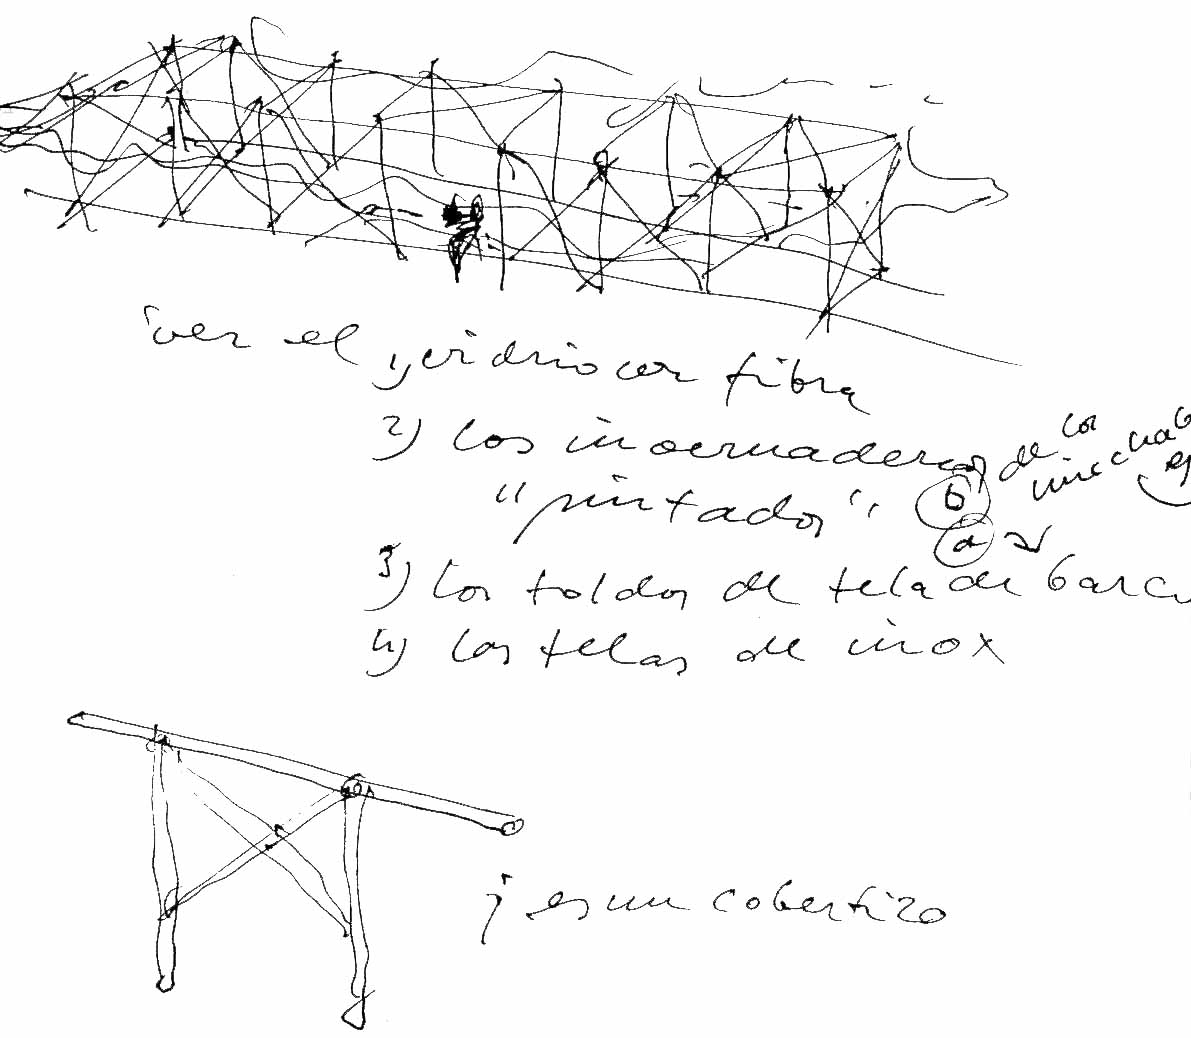 ver el
1) vidrio con fibra
2) los invernaderos de los
"pintados" b
a
3) los toldos de tela de barco
4) las telas de inox
¡ es un cobertizo